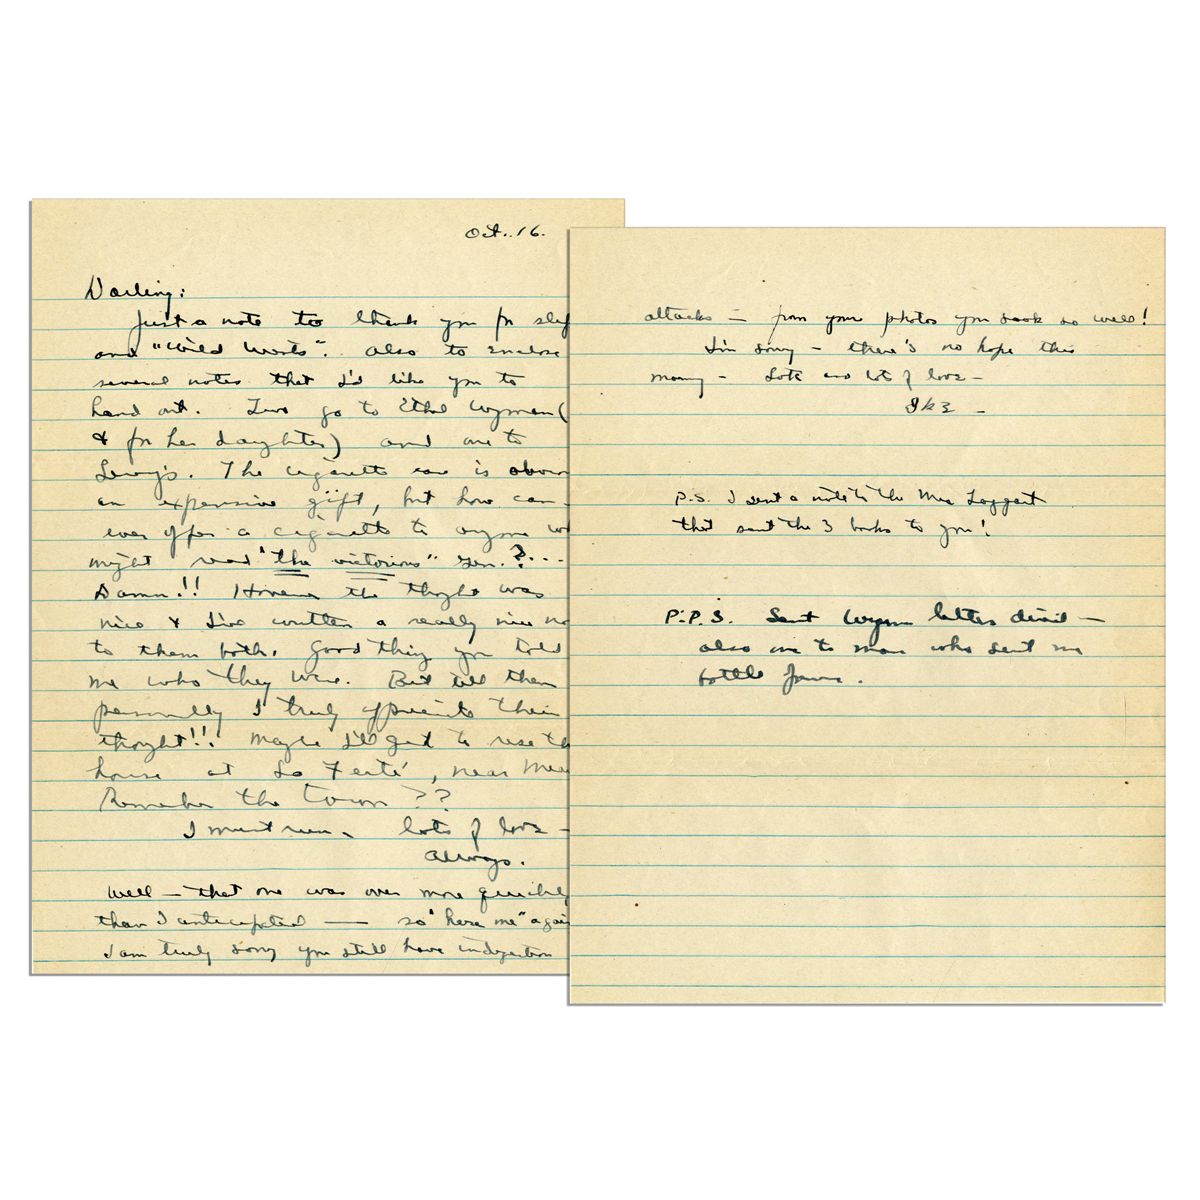 Oct. 16.
Darling:
Just a note to thank you for
and "Wild Wests". Also to enclose
several notes that I'd like you to
hand out. Two go to Ethel Wyman (
& for her daughter) and one to
The cigarette case is
an expensive gift, but how can
ever offer a cigarette to anyone
might read "the victorious" Gen.?...
Damn!! However the thought was
nice & I've written a really nice
to them both. Good thing you told
me who they were. But tell them
personally I truly appreciate their
thought!! Maybe I'll get to use
house at La Ferté, near
Remember the town ??
I must run - lots of love -
Always.
Well - that one was over more quickly
than I anticipated — so "here me"
I am truly sorry you still have indigestion
attacks - from your photos you look so well!
I'm sorry - there's no hope this
- Lots and lots of love -
Ike -
P.S. I sent a note to the Mrs
that sent the 3 books to you!
P.P.S. Sent Wyman letters direct -
also one to man who sent me